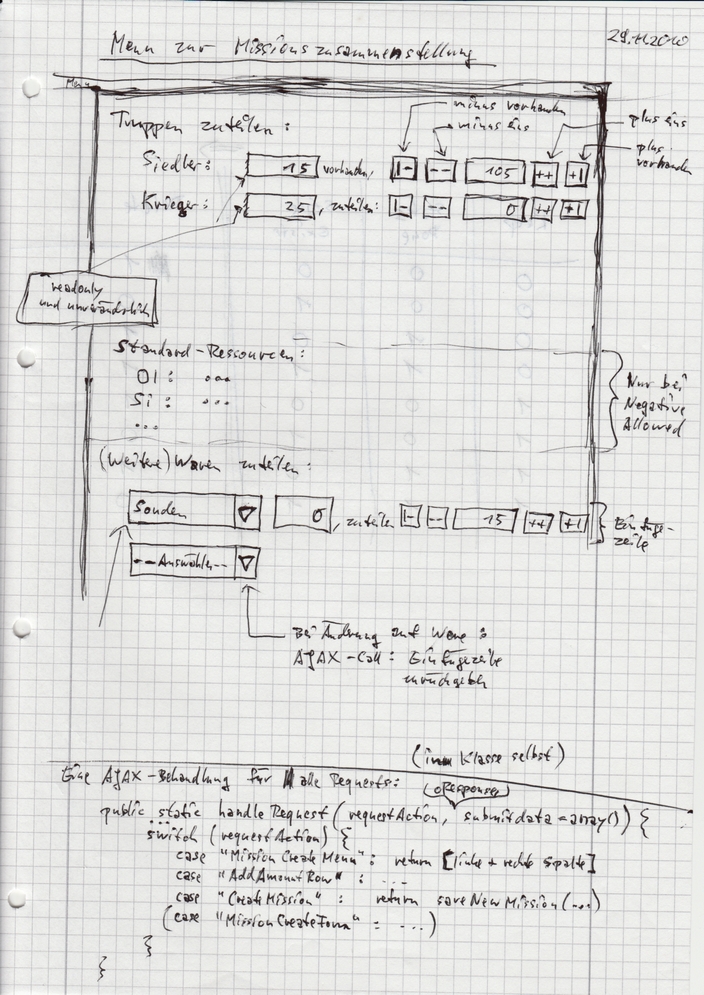 29.11.2010
Menu zur Missionszusammenstellung
Menu
minus vorhanden
minus eins
plus eins
plus vorhanden
Truppen zuteilen:
Siedler: 15 vorhanden, |- -- 105 ++ +|
Krieger: 25, zuteilen: |- -- 0 ++ +|
readonly
und unveränderlich
Standard-Ressourcen:
Öl: ...
Si: ...
...
Nur bei
Negative
Allowed
(Weitere) Waren zuteilen:
Sonden 0, zuteilen |- -- 15 ++ +|
Einfüge-
zeile
--Auswählen--
Bei Änderung auf Ware:
AJAX-Call: Einfügezeile
zurückgeben
(in Klasse selbst)
Eine AJAX-Behandlung für alle Requests:
(oResponse)
public static handleRequest(requestAction, submitdata = array()) {
...
switch (requestAction) {
case "MissionCreateMenu": return [linke + rechte Spalte]
case "AddAmountRow": ...
case "CreateMission": return saveNewMission(...)
(case "MissionCreateForm" = ...)
}
}